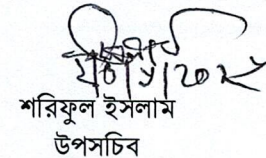 শরিফুল ইসলাম
উপসচিব